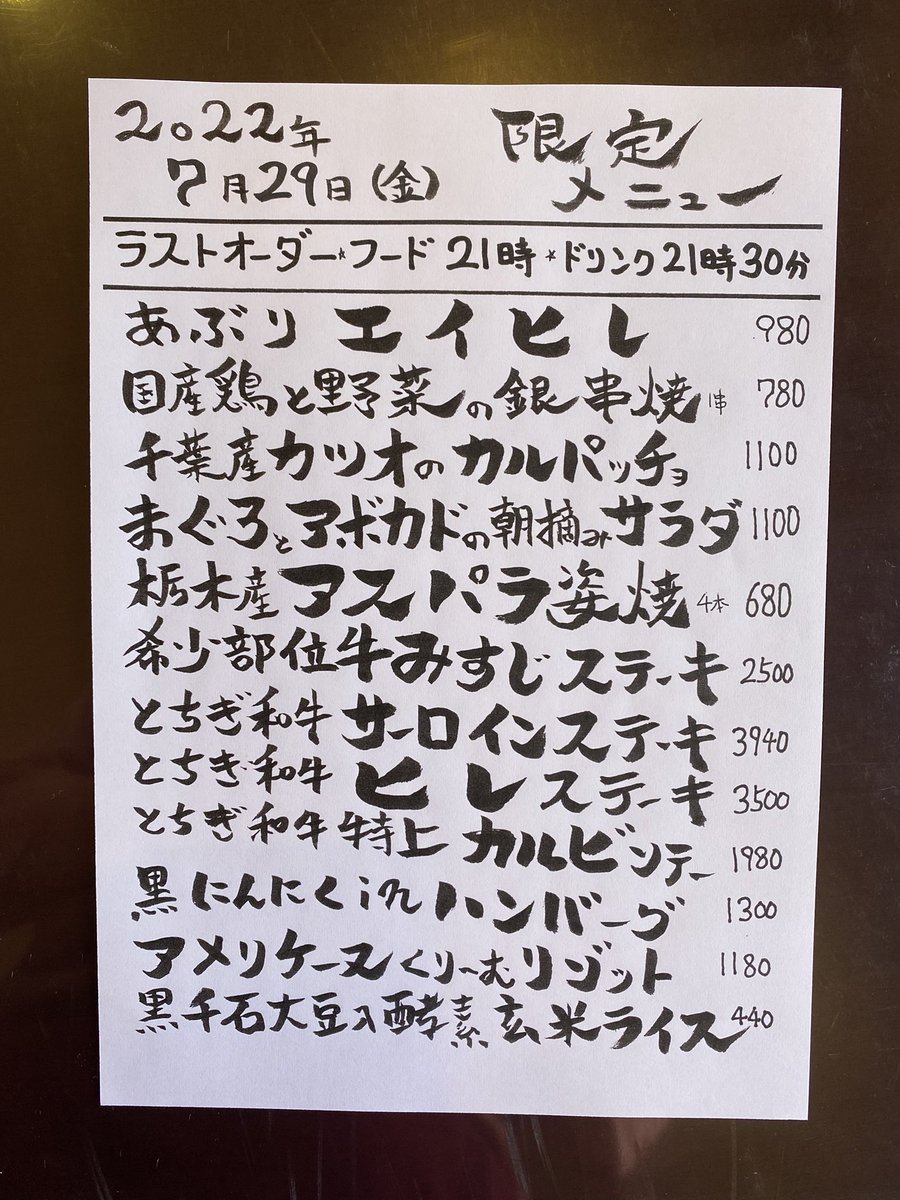 2022年
7月29日(金)
限定
メニュー
ラストオーダー*フード 21時 *ドリンク21時30分
あぶり エイヒレ 980
国産鶏と野菜の銀串焼 1串 780
千葉産カツオのカルパッチョ 1100
まぐろとアボカドの朝摘みサラダ 1100
栃木産アスパラ姿焼 4本 680
希少部位牛みすじステーキ 2500
とちぎ和牛 サーロインステーキ 3940
とちぎ和牛 ヒレステーキ 3500
とちぎ和牛特上 カルビソテー 1980
黒にんにくinハンバーグ 1300
アメリケーヌくりーむリゾット 1180
黒千石大豆入酵素玄米ライス 440